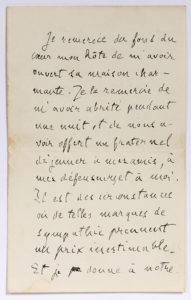 Je remercie du fond du
cœur mon hôte de m'avoir
ouvert sa maison char-
mante. Je le remercie de
m'avoir abrité pendant
une nuit, et de nous a-
voir offert un fraternel
déjeuner à mes amis, à
mes défenseurs et à moi.
Il est des circonstances
où de telles marques de
sympathie prennent
un prix inestimable.
Et je donne à notre